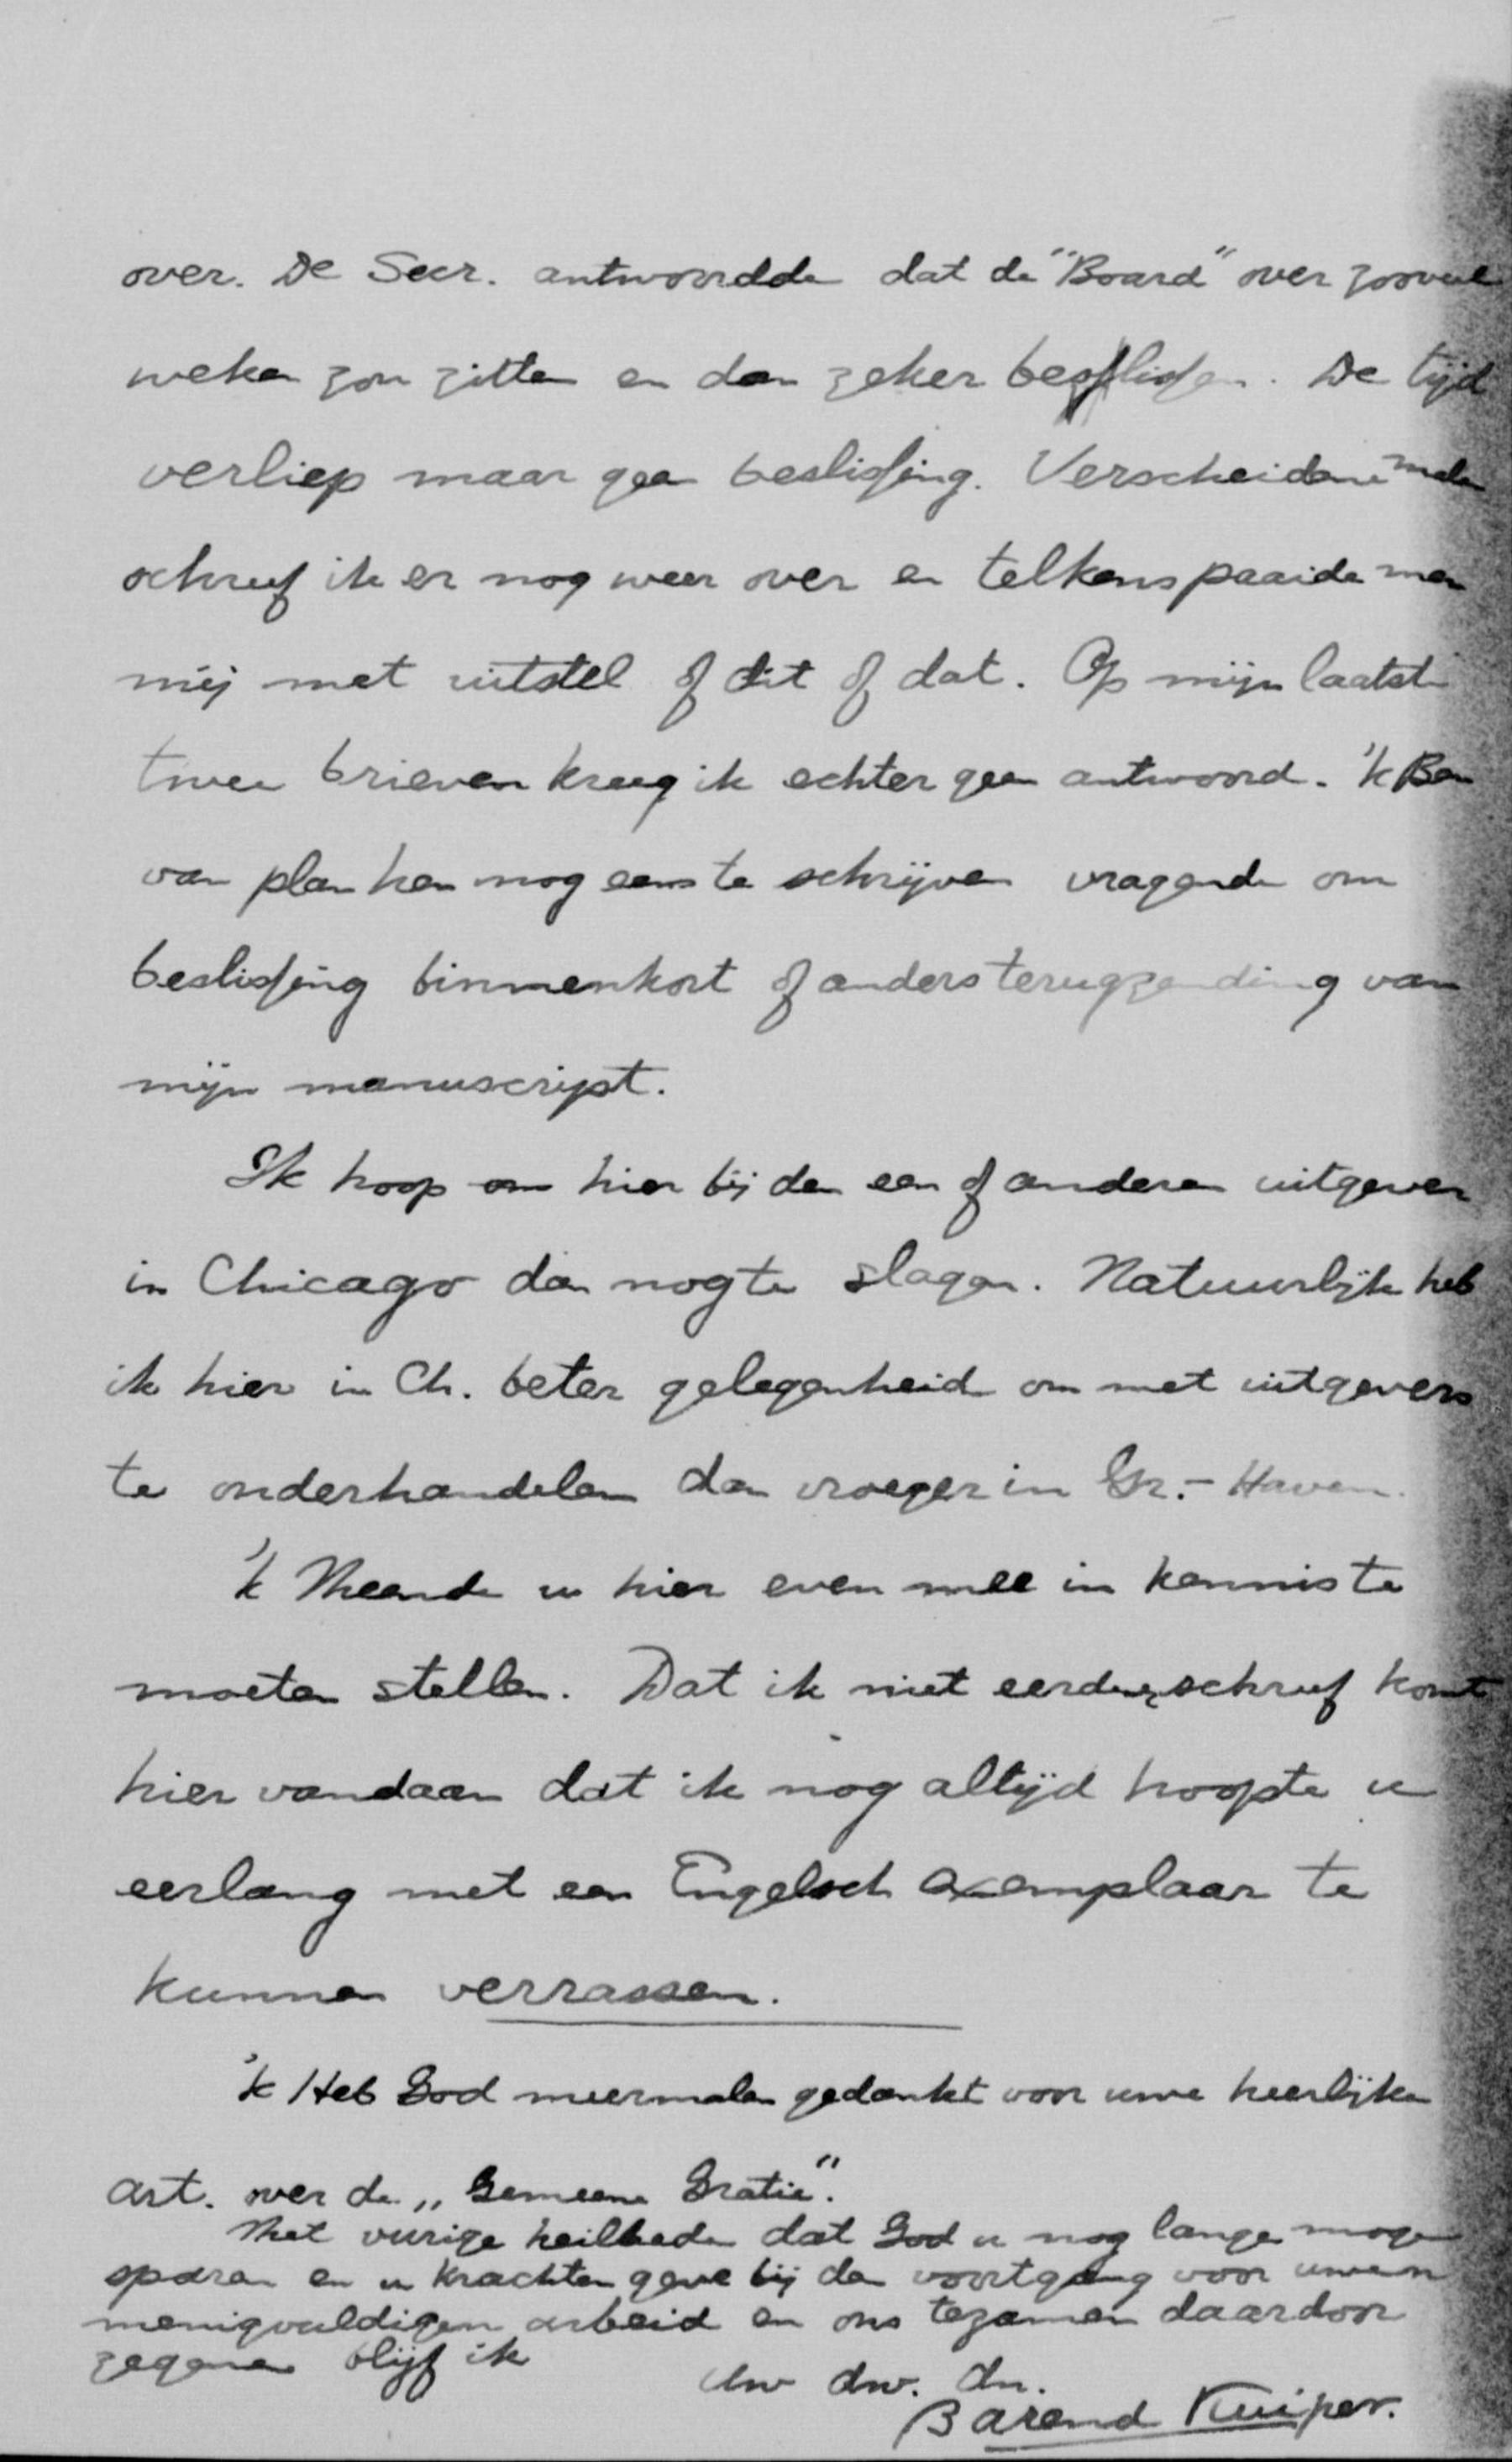 over. De Secr. antwoordde dat de "Board" over zooveel
weken zou zitten en dan zeker beslissen. De tijd
verliep maar geen beslissing. Verscheidene malen
schreef ik er nog weer over en telkens paaide men
mij met uitstel of dit of dat. Op mijn laatste
twee brieven kreeg ik echter geen antwoord. 'k Ben
van plan hen nog eens te schrijven vragende om
beslissing binnenkort of anders terugzending van
mijn manuscript.
Ik hoop om hier bij den een of anderen uitgever
in Chicago dan nog te slagen. Natuurlijk heb
ik hier in Ch. beter gelegenheid om met uitgevers
te onderhandelen dan vroeger in Gr.- Haven.
'k Meende u hier even mee in kennis te
moeten stellen. Dat ik niet eerder schreef komt
hier vandaan dat ik nog altijd hoopte u
eerlang met een Engelsch exemplaar te
kunnen verrassen.
'k Heb God meermalen gedankt voor uwe heerlijke
art. over de „Gemeene Gratie".
Met vurige heilbede dat God u nog lange moge
sparen en u krachten geve bij den voortgang voor uwen
menigvuldigen arbeid en ons tezamen daardoor
zegenen blijf ik
Uw dw. dn.
Barend Kuiper.